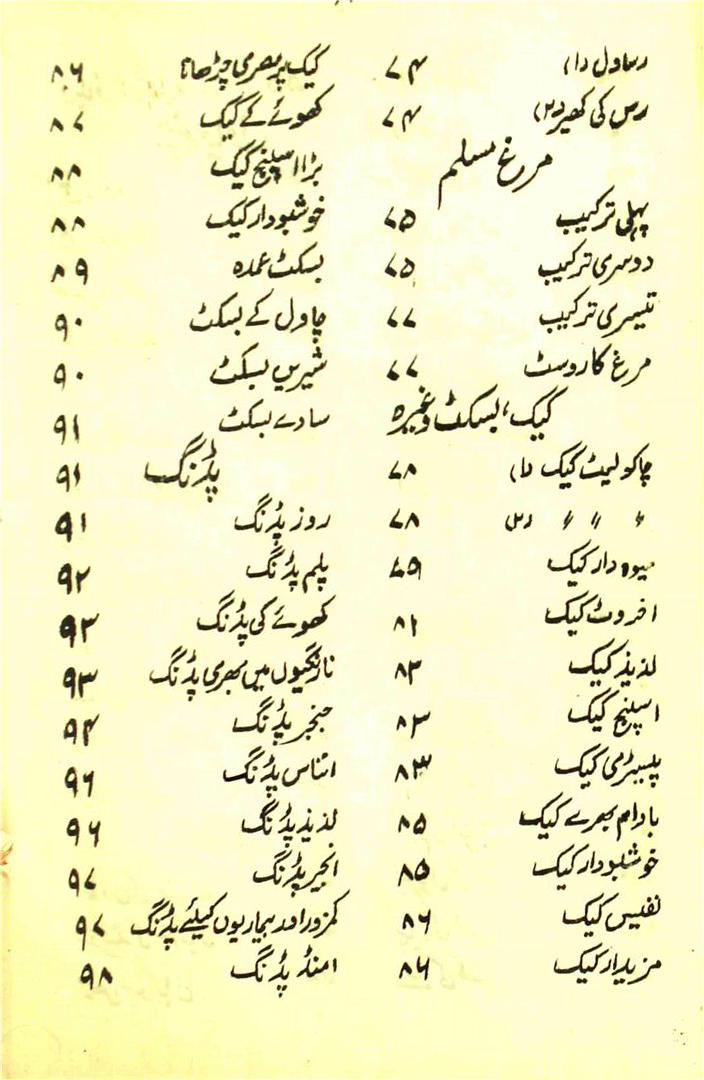 رساول (۱) ۷۴
رس کی کھیر (۲) ۷۴
مرغ مسلم
پہلی ترکیب ۷۵
دوسری ترکیب ۷۵
تیسری ترکیب ۷۷
مرغ کا روسٹ ۷۷
کیک، بسکٹ وغیرہ
چاکولیٹ کیک (۱) ۷۸
〃 〃 〃 (۲) ۷۸
میوہ دار کیک ۷۹
اخروٹ کیک ۸۱
لذیذ کیک ۸۲
اسپنج کیک ۸۲
پیسٹری کیک ۸۳
بادام بھرے کیک ۸۵
خوشبودار کیک ۸۵
نفیس کیک ۸۶
مزیدار کیک ۸۶
کیک پر مصری چڑھانا ۸۶
کھوئے کے کیک ۸۷
بڑا اسپنج کیک ۸۸
خوشبودار کیک ۸۸
بسکٹ عمدہ ۸۹
چاول کے بسکٹ ۹۰
شیریں بسکٹ ۹۰
سادے بسکٹ ۹۱
پڈنگ ۹۱
روز پڈنگ ۹۱
پلم پڈنگ ۹۲
کھوئے کی پڈنگ ۹۳
نارنگیوں میں بھری پڈنگ ۹۳
جنجر پڈنگ ۹۴
انناس پڈنگ ۹۶
لذیذ پڈنگ ۹۶
انجیر پڈنگ ۹۷
کمزور اور بیماریوں کیلئے پڈنگ ۹۷
امنڈ پڈنگ ۹۸